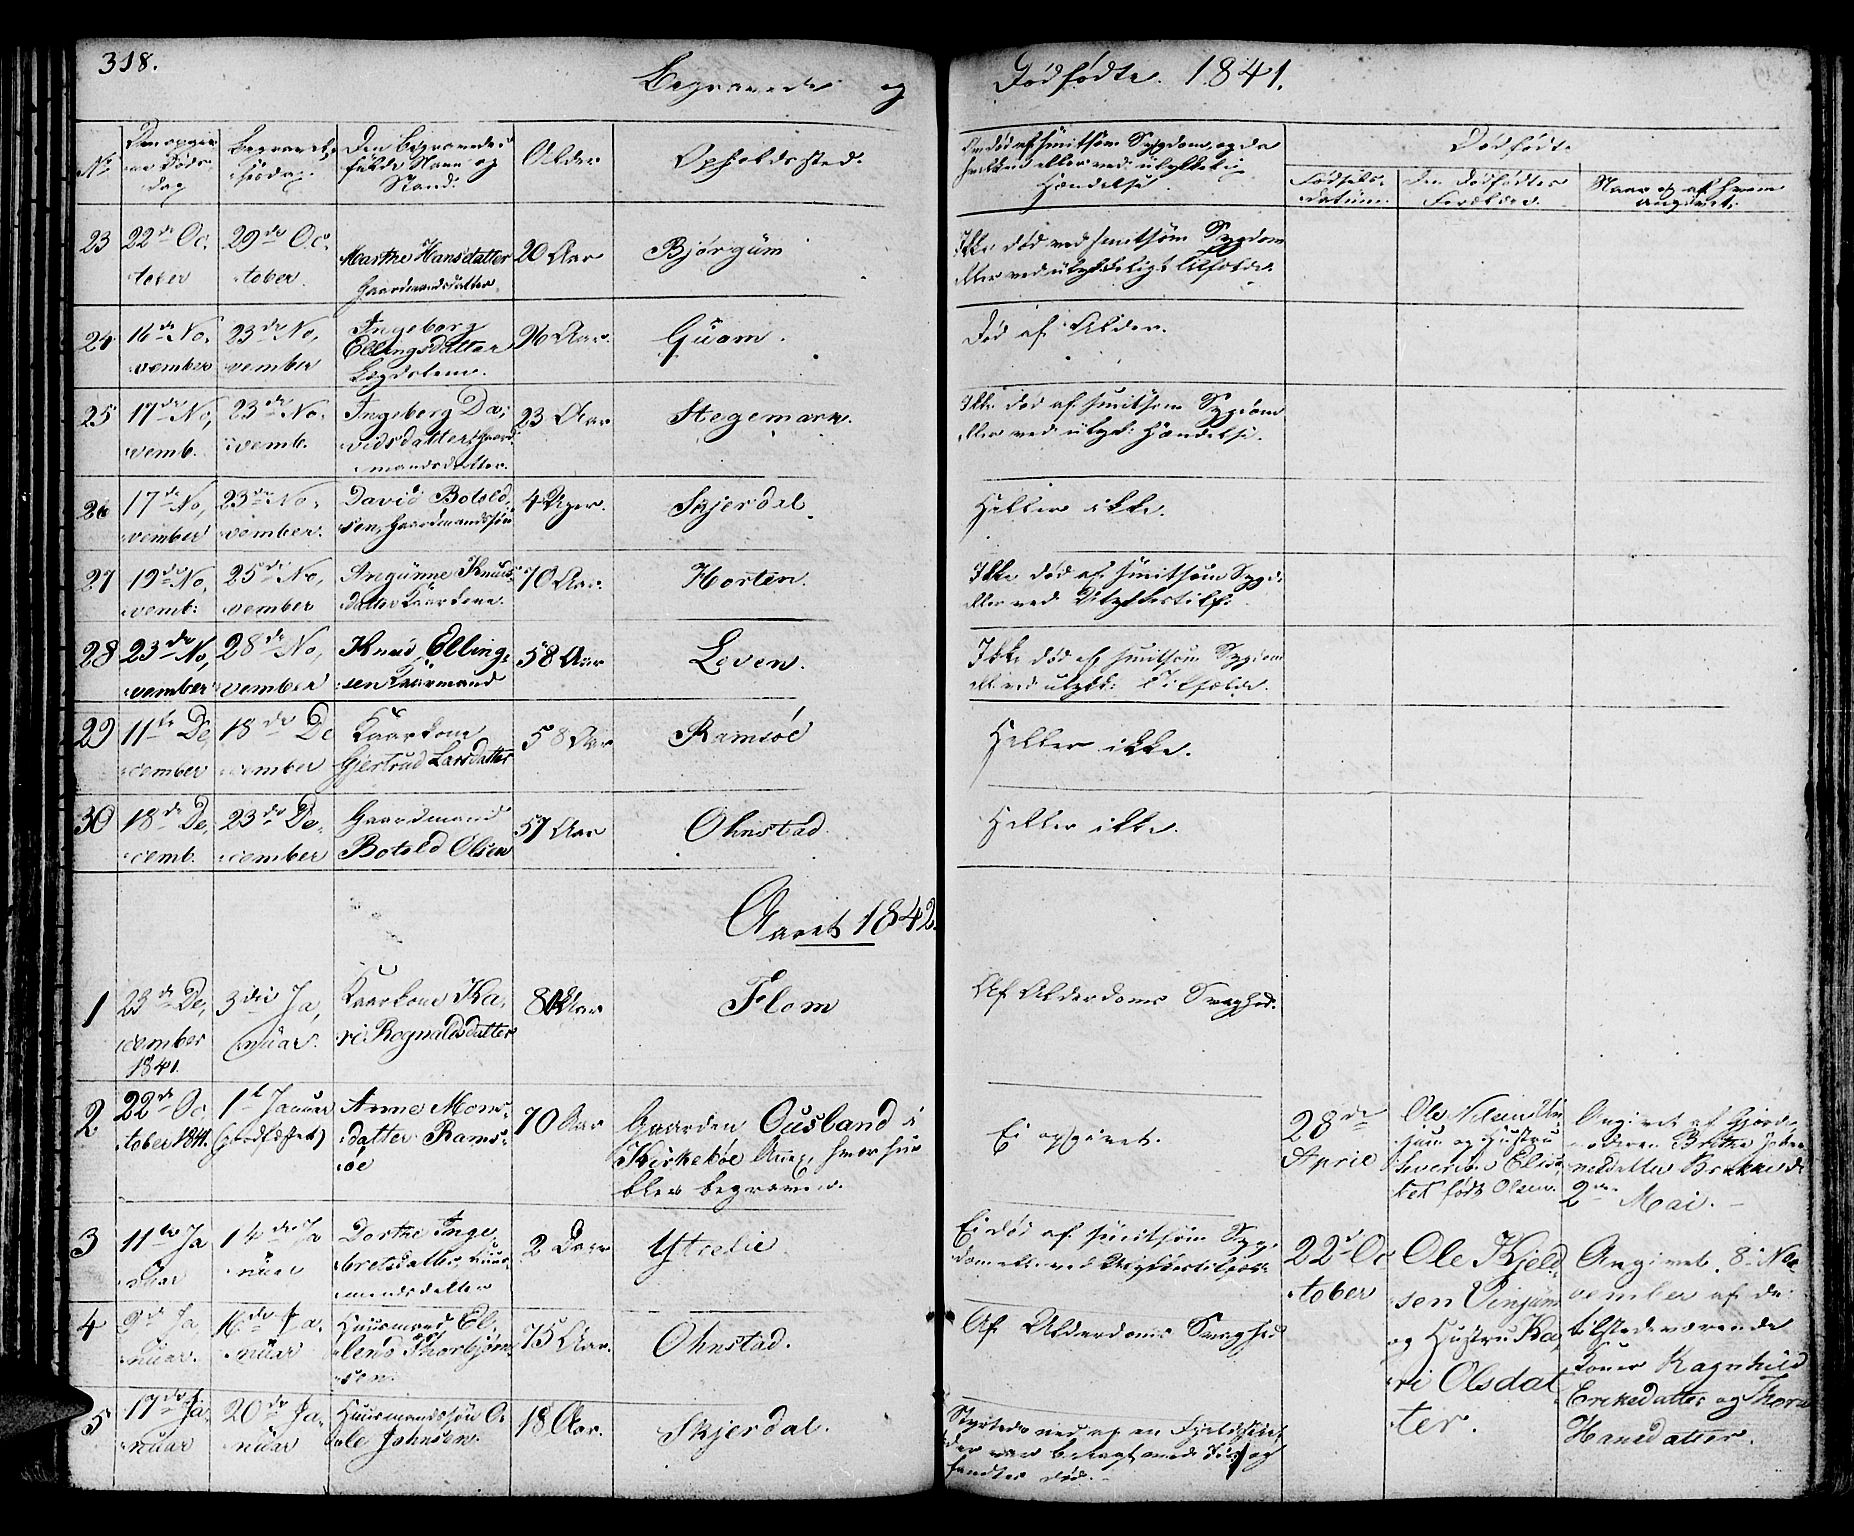 318.
Begravede og Dødfødte. 1841.
No
Den opgiv
ne Døds
dag
Begravel,
sesdag.
Den Begravedes
fulde Navn og
Stand.
Alder
Opholdssted.
Om død af smitsom Sygdom, og da
hvilken eller ved ulykkelig
Hændelse.
Dødfødte
Fødsels-
datum.
Den Dødfødtes
Forældre.
Naar og af hvem
angivet.
23
22de Oc,
tober
29de Oc,
tober.
Marthe Hansdatter
Gaardmandsdatter.
20 Aar
Bjørgum
Ikke død ved smitsom Sygdom
eller ved ulykkeligt Tilfælde.
24
16de No,
vember
23de No,
vember
Ingeborg
Ellingsdatter
Lægdslem.
96 Aar.
Guam.
Død af Alder.
25
17de No,
vemb.
23de No,
vemb.
Ingeberg Da,
vidsdatter, Gaard
mandsdatter.
23 Aar
Stegemark.
Ikke død af smitsom Sygdom
eller ved ulyk: Hændelse.
26
17de No,
vember
23de No,
vember.
David Botold,
sen, Gaardmandssøn
4 Uger.
Skjerdal
Heller ikke.
27
19de No,
vemb:
25de No,
vember
Ingunne Knuds
datter Kaarkone.
70 Aar.
Horten.
Ikke død af smitsom Sygd:
eller ved Ulykkestilf:
28
23de No,
vember
28de No,
vember
Knud Elling,
sen Kaarmand
58 Aar
Loven.
Ikke død af smitsom Sygdom
ell: ved ulykk: Tilfælde.
29
11te De,
cember
18de De
cember
Kaarkone
Gjertrud Larsdatter
58 Aar
Ramsöe
Heller ikke.
30
18de De,
cemb.
23de De,
cember
Gaardmand
Botold Olsen
57 Aar
Ohnstad.
Heller ikke.
Aaret 1842.
1
23de De,
cember
1841.
3die Ja,
nuar.
Kaarkone Ka,
ri Rognaldsdatter
Aar
Flom
Af Alderdoms Svaghed.
2
22de Oc,
tober 1841.
1t Januar
Anne Mons,
datter Rams,
öe
70 Aar
Gaarden Ousland i
Kirkeböe Annex, hvor hun
blev begraven.
Ei opgivet.
28de
April
Ole
og Hustru
født Olsen.
Angivet af Gjorde,
moderen Brithe
2den Mai.
3
11te Ja
nuar
14de Ja
nuar
Dorthe Inge,
bretsdatter, Huus
mandsdatter
2 Dage
Ytrelie
Ei død af smitsom Syg,
dom ell. ved Ulykkestilfælde
22de Oc
tober
Ole Kjeld,
sen Vinjum
og Hustru Ka,
ri Olsdat
ter.
Angivet 8de No,
vember af de
tilstedeværende
Koner Ragnhild
Ericksdatter og Thora
Hansdatter.
4
Ja
nuar.
16de Ja,
nuar
Huusmand El,
lend Thorbjørn,
sen.
75 Aar.
Ohnstad.
Af Alderdoms Svaghed
5
17de Ja,
nuar
20de Ja,
nuar
Huusmandssøn O,
le Johnsen.
18 Aar.
Skjerdal.
Styrtede ned af en Fjeldside,
der var belagt med Iis og
fandtes død.